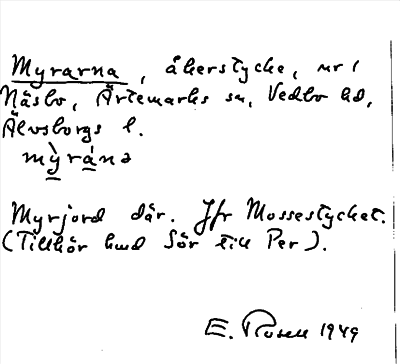 Myrarna, åkerstycke, nr 1
Näsbo, Ärtemarks sn, Vedbo hd,
Älvsborgs l.
my̠̍ra̠̍nə
Myrjord där. Jfr Mossestycket.
(Tillhör hmd Sör till Per).
E. Rosell 1949